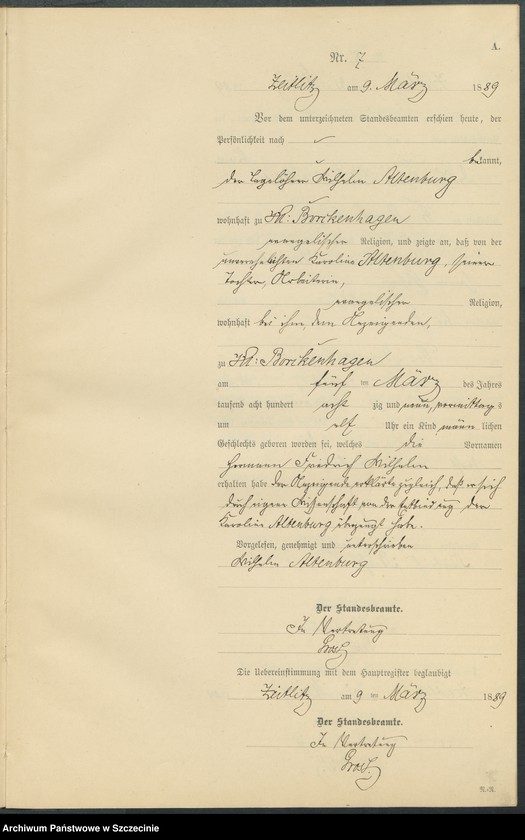 A.
Nr. 7
Zeitlitz am 9. März 1889
Vor dem unterzeichneten Standesbeamten erschien heute, der
Persönlichkeit nach
bekannt,
der Tagelöhner Wilhelm Altenburg
wohnhaft zu Kl: Borckenhagen
evangelischer Religion, und zeigte an, daß von der
unverehelichten Karoline Altenburg, seiner
Tochter, Arbeiterin,
evangelischer Religion,
wohnhaft bei ihm, dem Anzeigenden,
zu Kl: Borckenhagen
am fünf ten März des Jahres
tausend acht hundert acht zig und neun, vormittags
um elf Uhr ein Kind männ lichen
Geschlechts geboren worden sei, welches die Vornamen
Hermann Friedrich Wilhelm
erhalten habe. Der Anzeigende erklärte zugleich, daß er sich
durch eigene Wissenschaft von der Entbindung der
Karoline Altenburg überzeugt habe.
Vorgelesen, genehmigt und unterschrieben
Wilhelm Altenburg
Der Standesbeamte.
In Vertretung
Die Uebereinstimmung mit dem Hauptregister beglaubigt
Zeitlitz am 9 ten März 1889
Der Standesbeamte.
In Vertretung
Archiwum Państwowe w Szczecinie